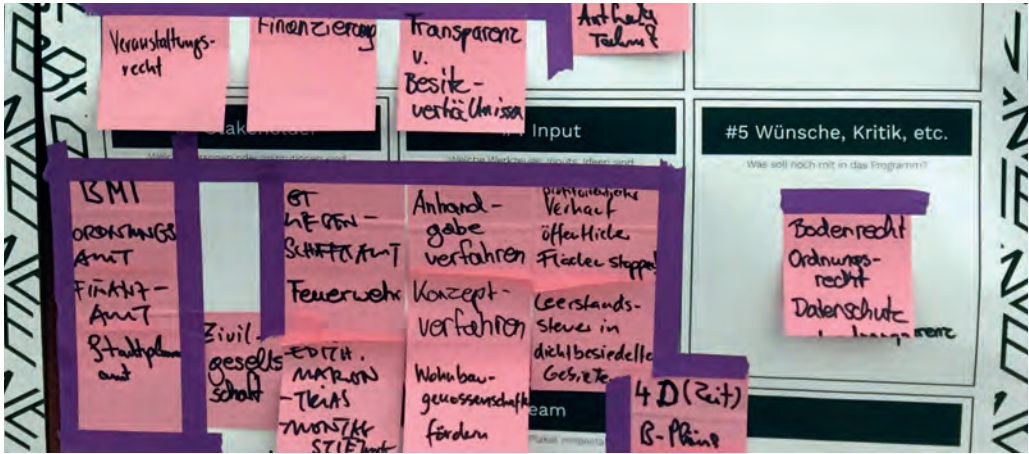 Veranstaltungs-
recht
Finanzierung
Transparenz
v.
Besitz-
verhältnissen
#5 Wünsche, Kritik, etc.
Was soll noch mit in das Programm?
Stakeholder
Input
BMI
ORDNUNGS
AMT
FINANZ-
AMT
Stadtplanungs
amt
Zivil-
gesells
schaft
LIEGEN-
SCHAFTSAMT
Feuerwehr
EDITH.
MARYON
-TRIAS
-MONTAG
Anhand-
gabe
verfahren
Konzept-
verfahren
Wohnbau-
genossenschafte
fördern
Verkauf
öffentliche
Flächen stoppen!
Leerstands-
steuer in
dichtbesiedelte
Gebiete
eam
4D (Zeit)
B-Pläne
Bodenrecht
Ordnungs-
recht
Datenschutz